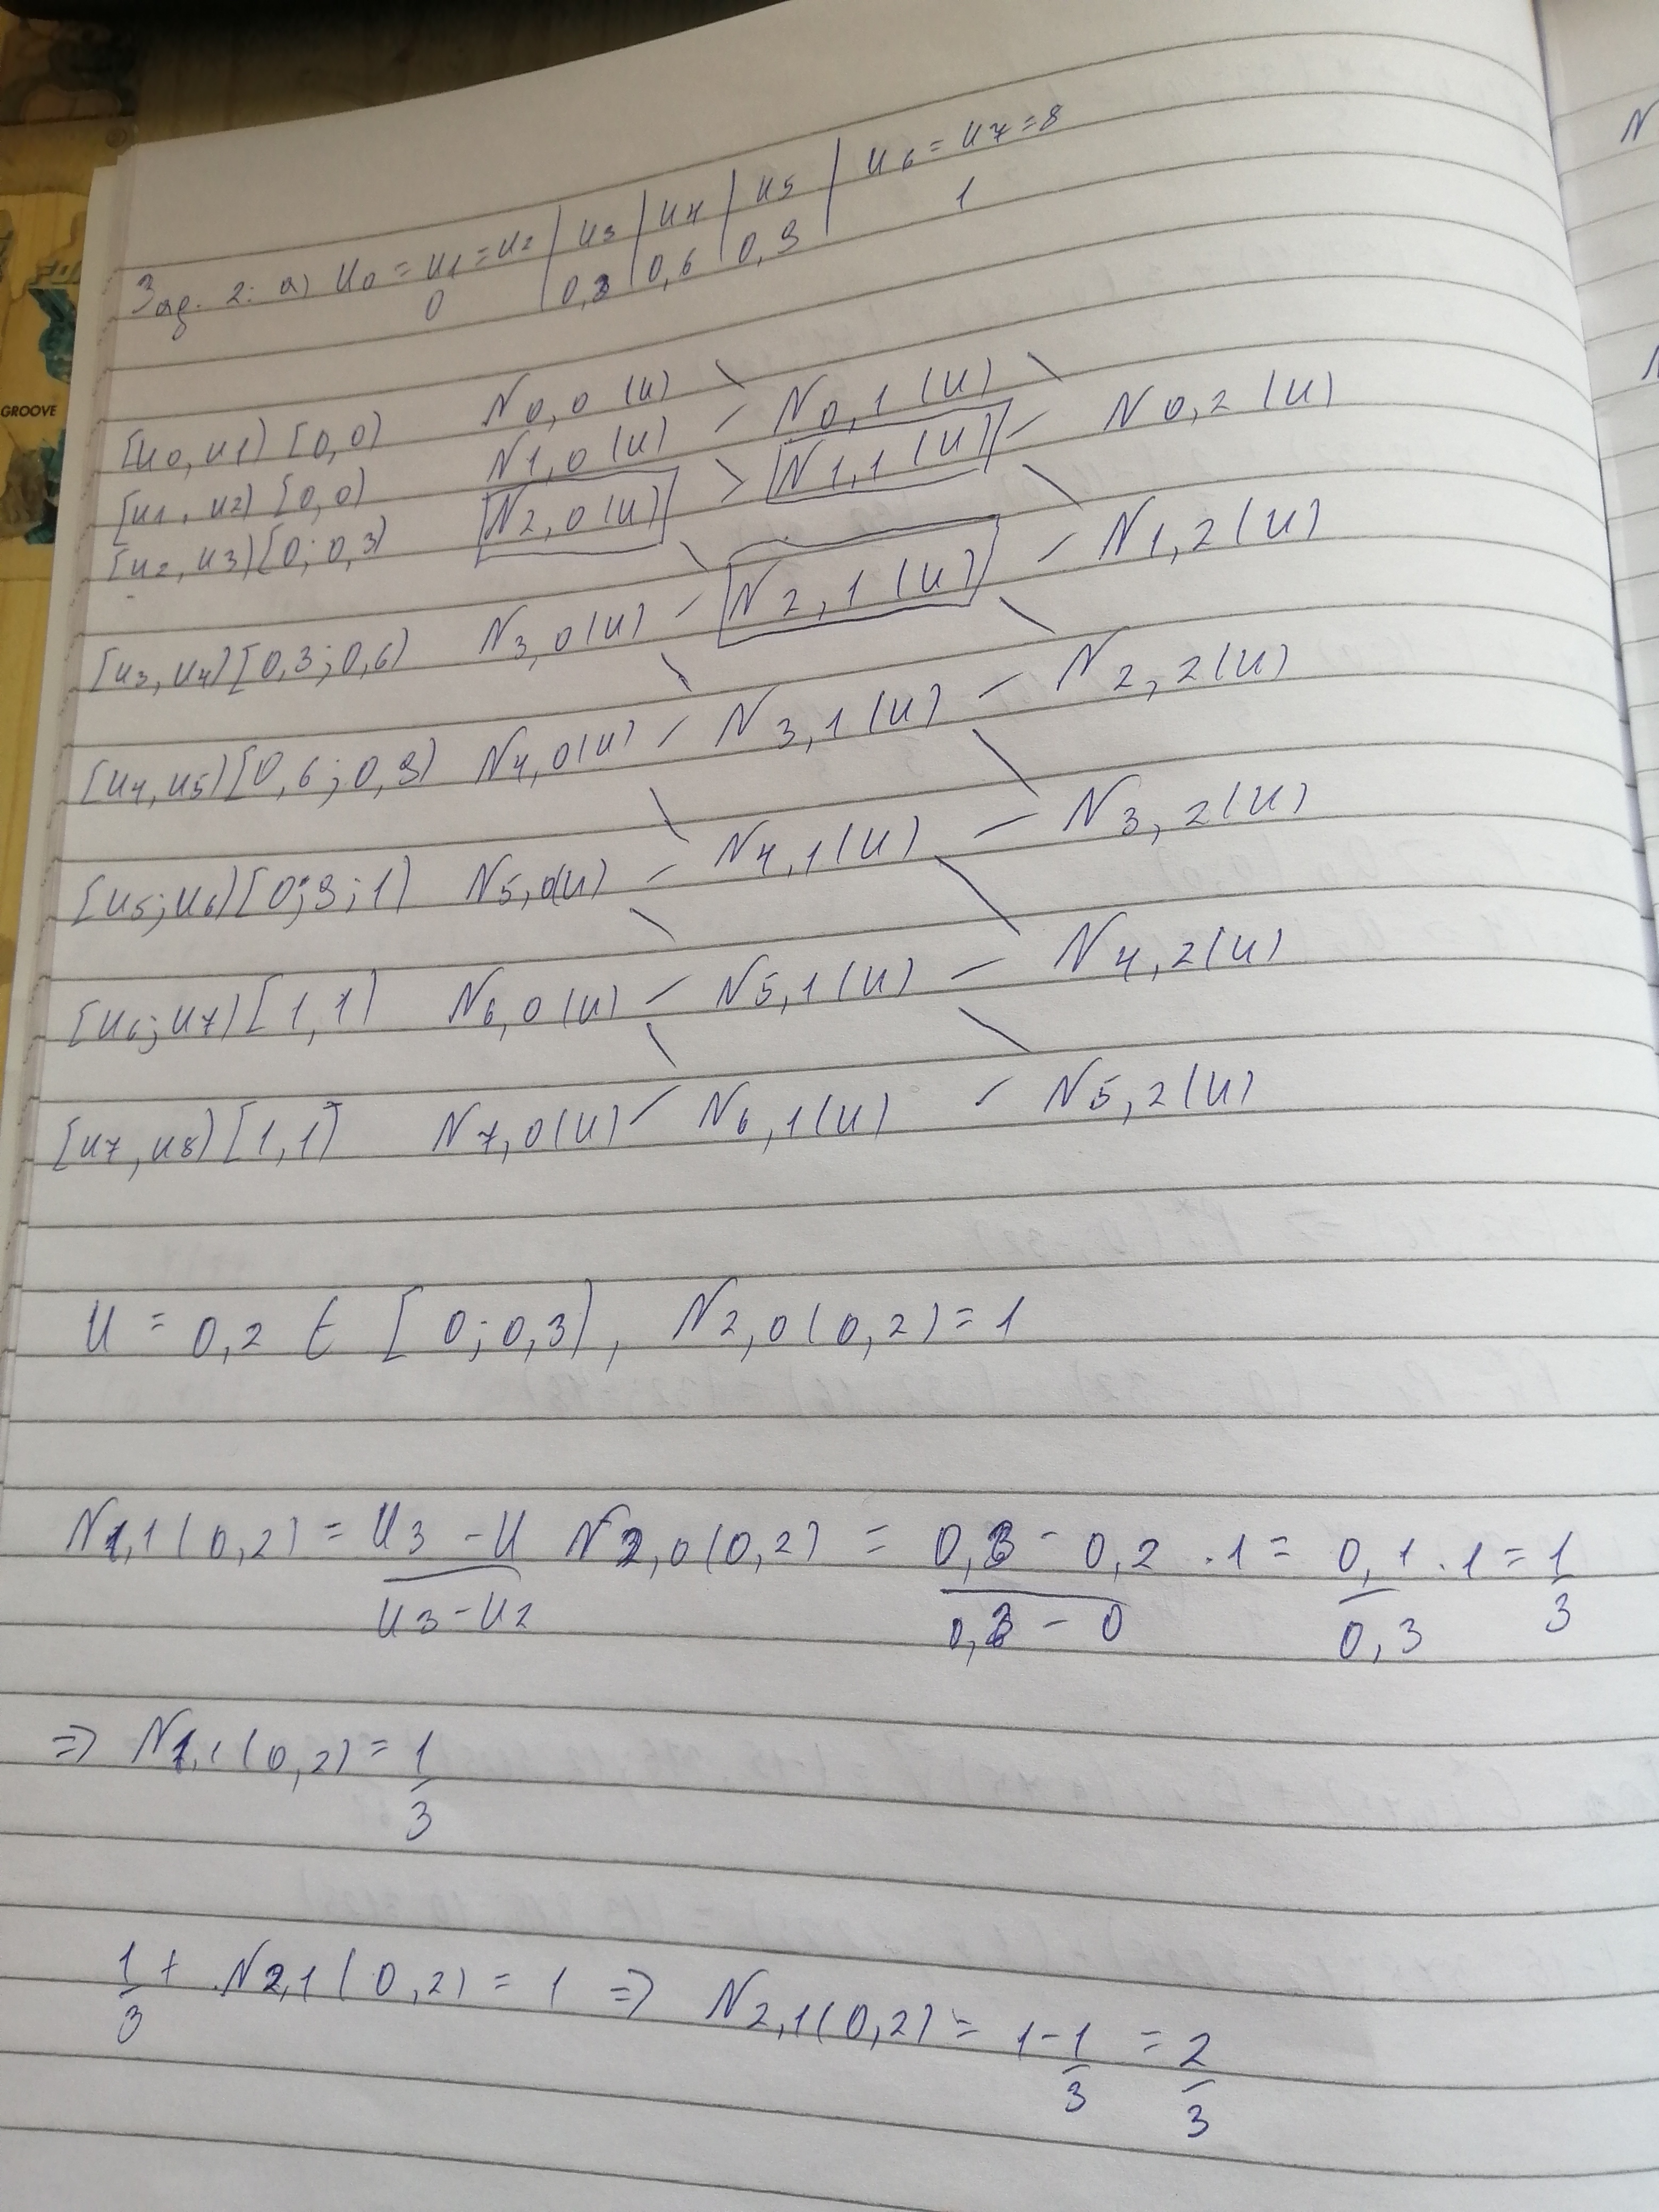 Зад. 2: а) u0 = u1 = u2 | u3 | u4 | u5 | u6 = u7 = 8
0 | 0,3 | 0,6 | 0,9 | 1
GROOVE
[u0, u1) [0,0) N0,0 (u) N0,1 (u) N0,2 (u)
[u1, u2) [0,0) N1,0 (u) N1,1 (u)
[u2, u3) [0; 0,3) N2,0 (u)
[u3, u4) [0,3; 0,6) N3,0 (u) N2,1 (u) N1,2 (u)
[u4, u5) [0,6; 0,9) N4,0 (u) N3,1 (u) N2,2 (u)
[u5; u6) [0,9; 1) N5,0 (u) N4,1 (u) N3,2 (u)
[u6; u7) [1,1] N6,0 (u) N5,1 (u) N4,2 (u)
[u7, u8) [1,1] N7,0 (u) N6,1 (u) N5,2 (u)
u = 0,2 ∈ [0; 0,3], N2,0 (0,2) = 1
N1,1 (0,2) = (u3 - u)/(u3 - u2) N2,0 (0,2) = (0,3 - 0,2)/(0,3 - 0) . 1 = 0,1/0,3 . 1 = 1/3
=> N1,1 (0,2) = 1/3
1/3 + N2,1 (0,2) = 1 => N2,1 (0,2) = 1 - 1/3 = 2/3